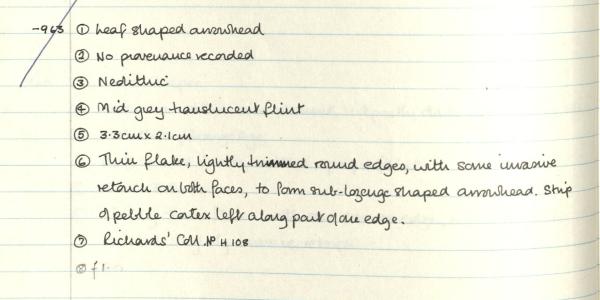 -963 ① Leaf shaped arrowhead
② No provenance recorded
③ Neolithic
④ Mid grey translucent flint
⑤ 3.3cm x 2.1cm
⑥ Thin flake, lightly trimmed round edges, with some invasive
retouch on both faces, to form sub-lozenge shaped arrowhead. Strip
of pebble cortex left along part of one edge.
⑦ Richards' Coll. No H 108
⑧ £1.